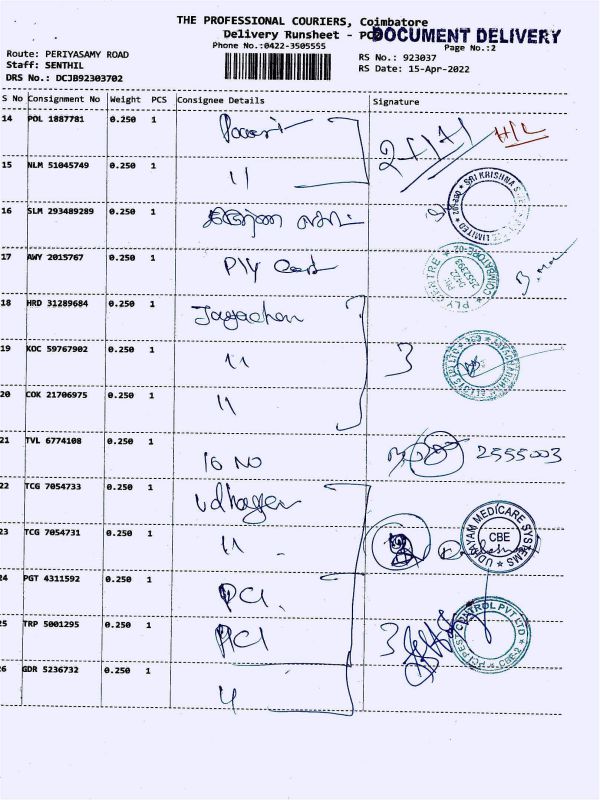 THE PROFESSIONAL COURIERS, Coimbatore
Delivery Runsheet - POD
DOCUMENT DELIVERY
Phone No.:0422-3505555
Page No.:2
Route: PERIYASAMY ROAD
Staff: SENTHIL
DRS No.: DCJB92303702
RS No.: 923037
RS Date: 15-Apr-2022
S No Consignment No Weight PCS Consignee Details Signature
14 POL 1887781 0.250 1
H/L
15 NLM 51045749 0.250 1 11
SRI KRISHNA
LIMITED
16 SLM 293489289 0.250 1
17 AWY 2015767 0.250 1 Ply
PLY CENTRE COIMBATORE-02
PH: 0422 2552393
18 HRD 31289684 0.250 1
19 KOC 59767902 0.250 1 11 3
20 COK 21706975 0.250 1 11
21 TVL 6774108 0.250 1 16 NO 2555003
22 TCG 7054733 0.250 1 Udhayam
23 TCG 7054731 0.250 1 11
UDHAYAM MEDICARE SYSTEMS
CBE
24 PGT 4311592 0.250 1 PCI
25 TRP 5001295 0.250 1 PCI 3
PCI PEST CONTROL PVT LTD CBE-2
26 GDR 5236732 0.250 1 4